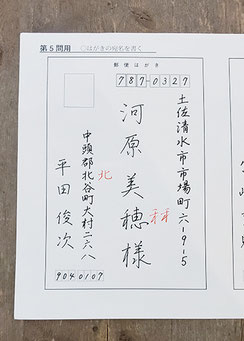 第5問用 ○はがきの宛名を書く
郵便はがき
787-0327
土佐清水市市場町六-9-5
河原美穂様
中頭郡北谷町大村二六八
北
平田俊次
9040107